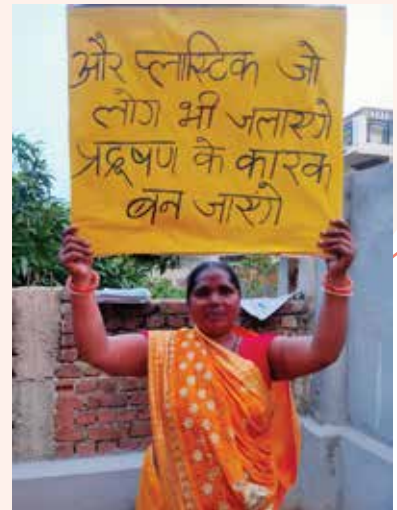 और प्लास्टिक जो
लोग भी जलाएगे
प्रदूषण के कारक
बन जाएगे